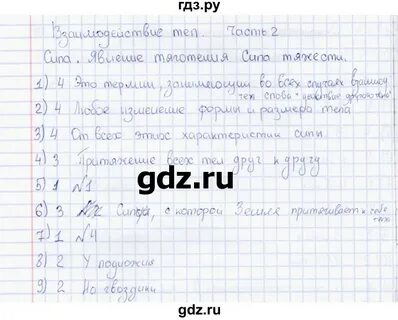 гдз.ру
Взаимодействие тел. Часть 2
Сила. Явление тяготения Сила тяжести.
1) 4 Это термин, заменяющий во всех случаях
тел слова "действие другого тела"
2) 4 Любое изменение формы и размера тела
3) 4 От всех этих характеристик силы
4) 3 Притяжение всех тел друг к другу
gdz.ru
5) 1 №1
6) 3 №2 Сила, с которой Земля притягивает к себе
тело
7) 1 №4
8) 2 У подножия
9) 2 На гвоздики
gdz.ru